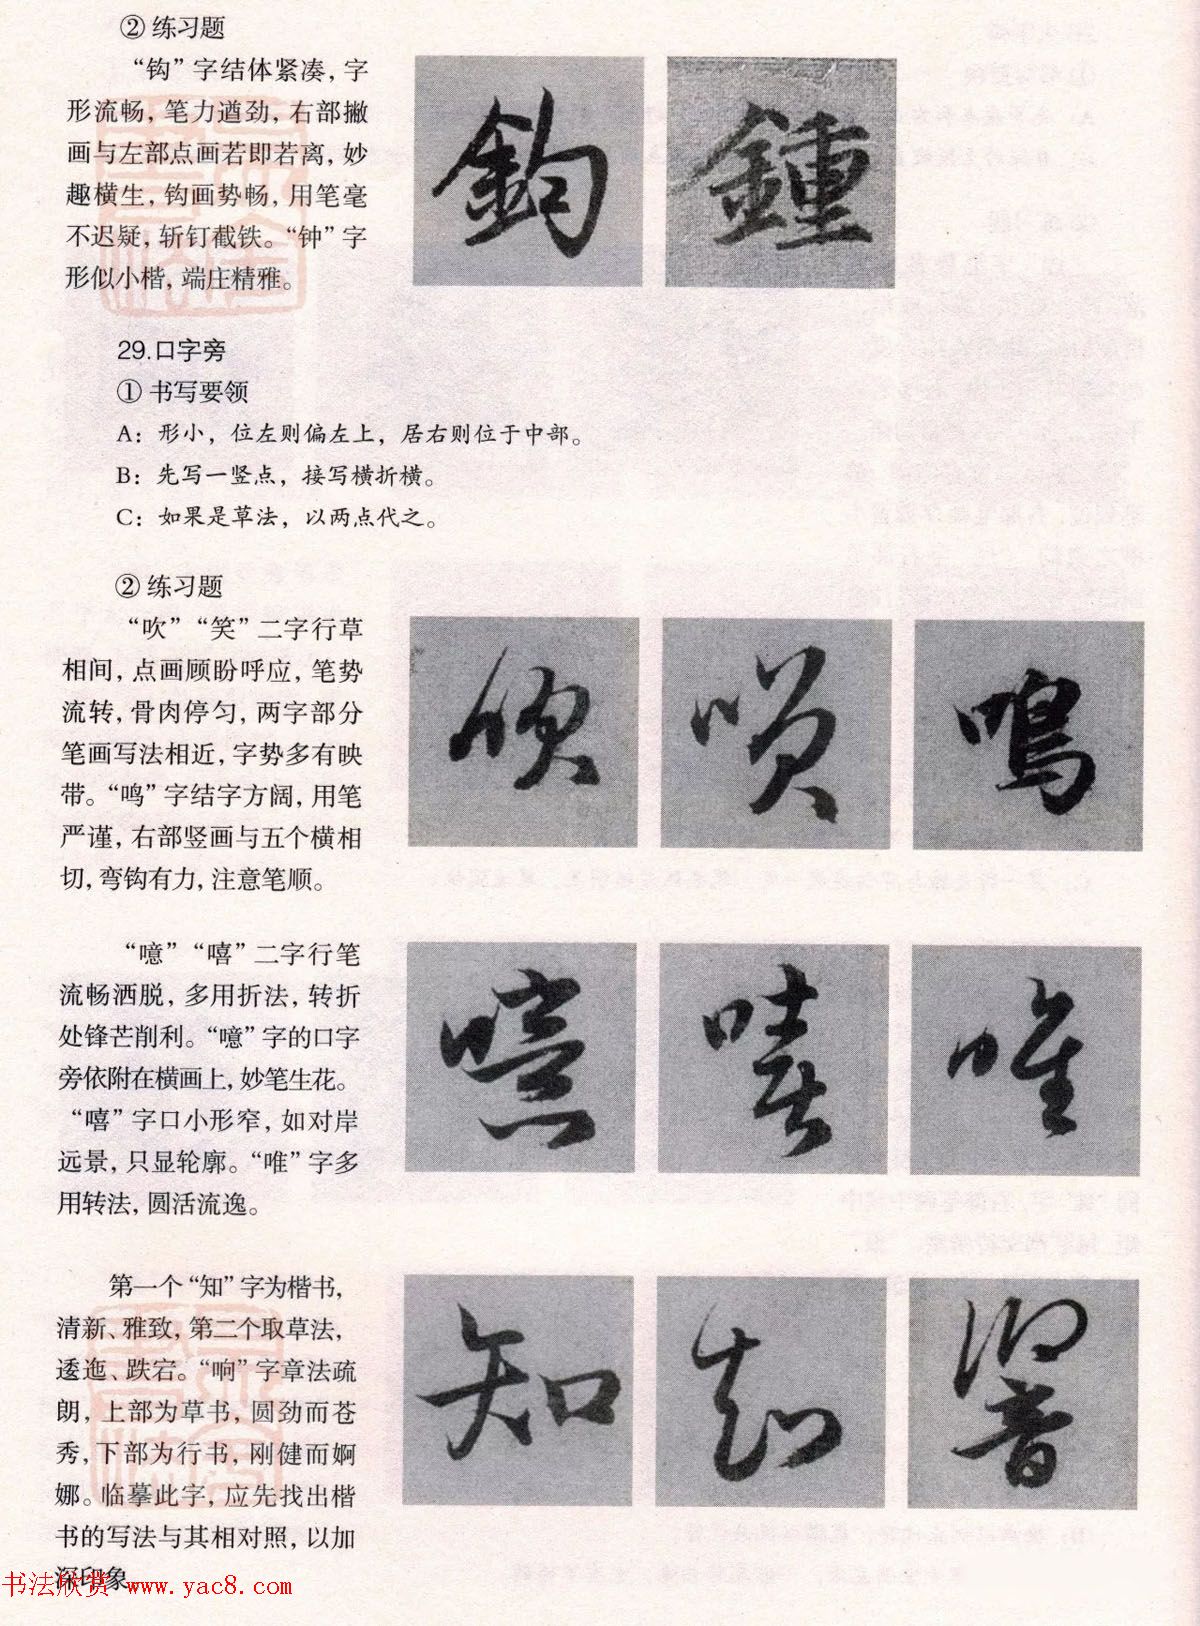 ② 练习题
“钩”字结体紧凑，字
形流畅，笔力遒劲，右部撇
画与左部点画若即若离，妙
趣横生，钩画势畅，用笔毫
不迟疑，斩钉截铁。“钟”字
形似小楷，端庄精雅。
鈎 鍾
29.口字旁
① 书写要领
A：形小，位左则偏左上，居右则位于中部。
B：先写一竖点，接写横折横。
C：如果是草法，以两点代之。
② 练习题
“吹”“笑”二字行草
相间，点画顾盼呼应，笔势
流转，骨肉停匀，两字部分
笔画写法相近，字势多有映
带。“鸣”字结字方阔，用笔
严谨，右部竖画与五个横相
切，弯钩有力，注意笔顺。
吹 鳴
“噫”“嘻”二字行笔
流畅洒脱，多用折法，转折
处锋芒削利。“噫”字的口字
旁依附在横画上，妙笔生花。
“嘻”字口小形窄，如对岸
远景，只显轮廓。“唯”字多
用转法，圆活流逸。
噫 嘻 唯
第一个“知”字为楷书，
清新、雅致，第二个取草法，
逶迤、跌宕。“响”字章法疏
朗，上部为草书，圆劲而苍
秀，下部为行书，刚健而婀
娜。临摹此字，应先找出楷
书的写法与其相对照，以加
深印象
知 知 響
书法欣赏 www.yac8.com